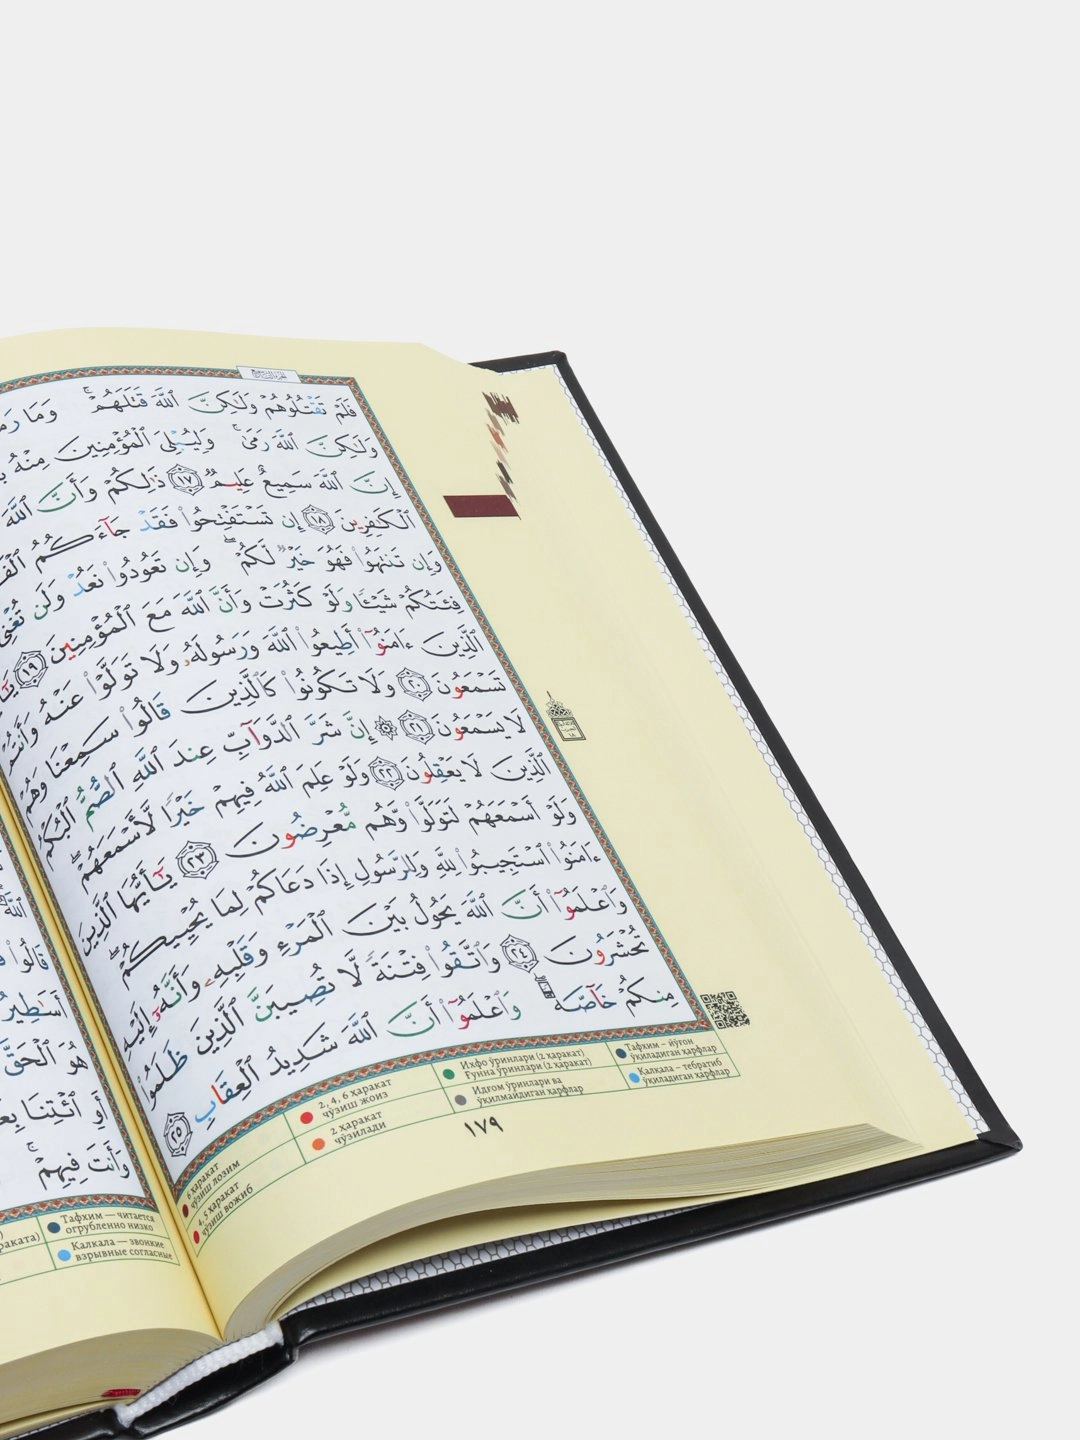 فَلَمْ تَقْتُلُوهُمْ وَلَٰكِنَّ ٱللَّهَ قَتَلَهُمْ ۚ وَمَا
وَلَٰكِنَّ ٱللَّهَ رَمَىٰ ۚ وَلِيُبْلِىَ ٱلْمُؤْمِنِينَ مِنْهُ
إِنَّ ٱللَّهَ سَمِيعٌ عَلِيمٌ ١٧ ذَٰلِكُمْ وَأَنَّ ٱللَّهَ
ٱلْكَٰفِرِينَ ١٨ إِن تَسْتَفْتِحُوا۟ فَقَدْ جَآءَكُمُ
وَإِن تَنتَهُوا۟ فَهُوَ خَيْرٌ لَّكُمْ ۖ وَإِن تَعُودُوا۟ نَعُدْ وَلَن تُغْنِىَ
فِئَتُكُمْ شَيْـًٔا وَلَوْ كَثُرَتْ وَأَنَّ ٱللَّهَ مَعَ ٱلْمُؤْمِنِينَ ١٩
ٱلَّذِينَ ءَامَنُوٓا۟ أَطِيعُوا۟ ٱللَّهَ وَرَسُولَهُۥ وَلَا تَوَلَّوْا۟ عَنْهُ وَأَنتُمْ
تَسْمَعُونَ ٢٠ وَلَا تَكُونُوا۟ كَٱلَّذِينَ قَالُوا۟ سَمِعْنَا وَهُمْ
لَا يَسْمَعُونَ ٢١ ۞ إِنَّ شَرَّ ٱلدَّوَآبِّ عِندَ ٱللَّهِ ٱلصُّمُّ ٱلْبُكْمُ
ٱلَّذِينَ لَا يَعْقِلُونَ ٢٢ وَلَوْ عَلِمَ ٱللَّهُ فِيهِمْ خَيْرًا لَّأَسْمَعَهُمْ ۖ
وَلَوْ أَسْمَعَهُمْ لَتَوَلَّوا۟ وَّهُم مُّعْرِضُونَ ٢٣ يَٰٓأَيُّهَا ٱلَّذِينَ
ءَامَنُوا۟ ٱسْتَجِيبُوا۟ لِلَّهِ وَلِلرَّسُولِ إِذَا دَعَاكُمْ لِمَا يُحْيِيكُمْ ۖ
وَٱعْلَمُوٓا۟ أَنَّ ٱللَّهَ يَحُولُ بَيْنَ ٱلْمَرْءِ وَقَلْبِهِۦ وَأَنَّهُۥٓ إِلَيْهِ
تُحْشَرُونَ ٢٤ وَٱتَّقُوا۟ فِتْنَةً لَّا تُصِيبَنَّ ٱلَّذِينَ ظَلَمُوا۟
مِنكُمْ خَآصَّةً ۖ وَٱعْلَمُوٓا۟ أَنَّ ٱللَّهَ شَدِيدُ ٱلْعِقَابِ ٢٥
6 ҳаракат
чўзиш лозим
4, 5 ҳаракат
чўзиш вожиб
2, 4, 6 ҳаракат
чўзиш жоиз
2 ҳаракат
чўзилади
Ихфо ўринлари (2 ҳаракат)
Ғунна ўринлари (2 ҳаракат)
Идғом ўринлари ва
ўқилмайдиган ҳарфлар
Тафхим – йўғон
ўқиладиган ҳарфлар
Қалқала – тебратиб
ўқиладиган ҳарфлар
١٧٩
ٱللَّهُ
قَالُوا۟
أَسَٰطِيرُ
هُوَ ٱلْحَقَّ
أَوِ ٱئْتِنَا
وَأَنتَ فِيهِمْ ۚ
Тафхим — читается
огрубленно низко
Калкала — звонкие
взрывные согласные